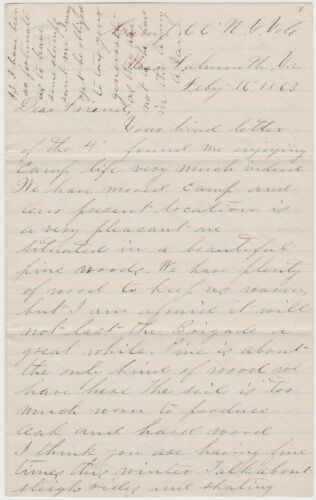 Camp 66" N.Y. Vols
Near Falmouth, Va
Feby 16 1863
Dear Friend,
Your kind letter
of the 4" found me enjoying
Camp life very much indeed
We have moved Camp and
our present location is
a very pleasant one
situated in a beautiful
pine woods. We have plenty
of wood to keep us warm,
but I am afraid it will
not last the Brigade a
great while. Pine is about
the only kind of wood we
have here the soil is too
much worn to produce
oak and hard wood
I think you are having fine
times this winter. Talk about
sleigh rides and skating
P.S. I have been
so fortunate
as to have
some stamps
sent me I may
not be obliged
to tax your
generosity
as there are
not to be had